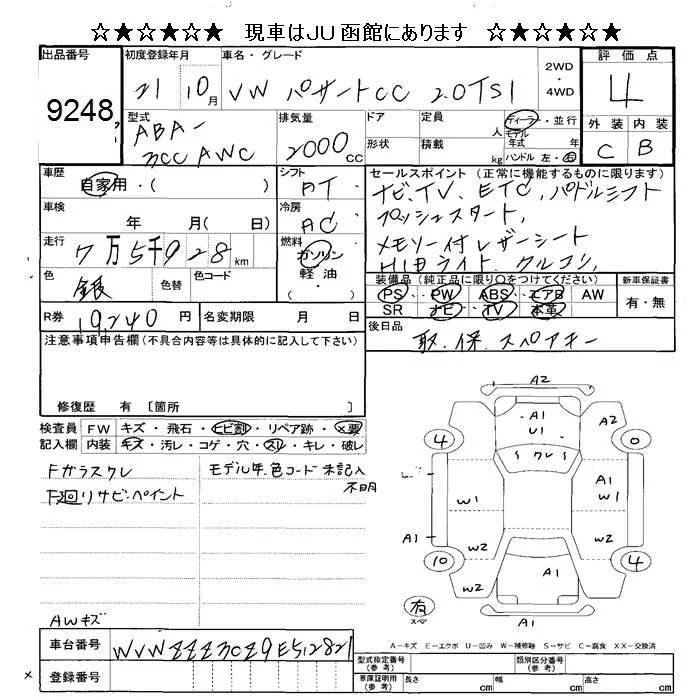 ☆★☆★☆★ 現車はJU函館にあります ☆★☆★☆★
出品番号 初度登録年月 車名・グレード 2WD・4WD 評価点
9248 21 10月 VW パサートCC 2.0TSI 4
型式 排気量 ドア 定員 人 ディーラー・並行 外装 内装
ABA-3CCAWC 2000cc 形状 積載 kg モデル年式 年 ハンドル 左・右 C B
車歴 自家用・( ) シフト AT セールスポイント (正常に機能するものに限ります)
ナビ、TV、ETC、パドルシフト
車検 年 月( 日) 冷房 AC プッシュスタート、
走行 7万5千928km 燃料 ガソリン・軽油・ メモリー付レザーシート
HIDライト、クルコン、
色 銀 色替 色コード 装備品(純正品に限り○をつけてください) 新車保証書
PS・PW・ABS・エアB AW 有・無
SR ナビ・TV・本革
R券 19,240円 名変期限 月 日 後日品
取、保、スペアキー
注意事項申告欄(不具合内容等は具体的に記入して下さい)
修復歴 有 〔箇所 〕
検査員記入欄 FW キズ・飛石・ヒビ割・リペア跡・×要
内装 キズ・汚レ・コゲ・穴・スレ・キレ・破レ
Fガラスワレ モデル年、色コード未記入
不明
下廻リサビ・ペイント
AWキズ
A2
A1 U1 A2
4 ワレ 0
A1
W1 W1
A1 W2 W2
10 W2 A1 4
有 スペ A1
A-キズ E-エクボ U-凹み W-補修跡 S-サビ C-腐食 XX-交換済
車台番号 WVWZZZ3CZ9E512821
型式指定番号(参考) 類別区分番号(参考)
× 登録番号 車庫証明用(参考) 長さ cm 幅 cm 高さ cm